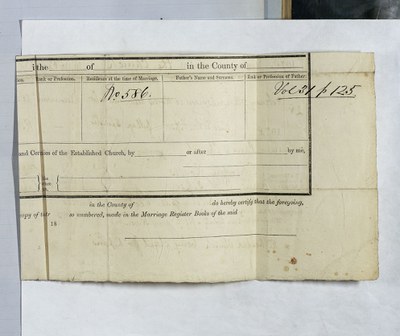 in the of in the County of
Rank or Profession. Residence at the time of Marriage. Father's Name and Surname. Rank or Profession of Father.
No 586. Vol 31 p 125
and Ceremonies of the Established Church, by or after by me,
in the County of do hereby certify that the foregoing,
copy of the so numbered, made in the Marriage Register Books of the said
18